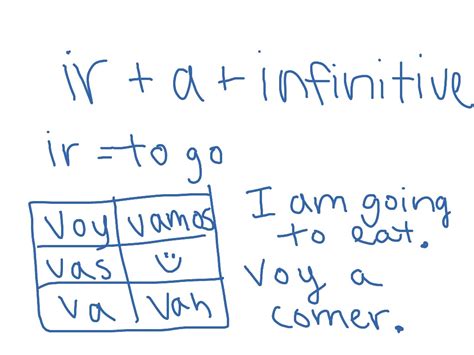 ir + a + infinitive
ir = to go
voy vamos
vas
va van
I am going
to eat.
Voy a
comer.